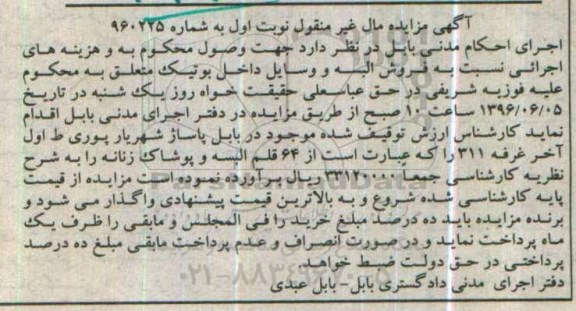 آگهی مزایده مال غیر منقول نوبت اول به شماره ۹۶۰۲۲۵
اجرای احکام مدنی بابل در نظر دارد جهت وصول محکوم به و هزینه های
اجرائی نسبت به فروش البسه و وسایل داخل بوتیک متعلق به محکوم
علیه فوزیه شریفی در حق عباسعلی حقیقت خواه روز یک شنبه در تاریخ
۱۳۹۶/۰۶/۰۵ ساعت ۱۰ صبح از طریق مزایده در دفتر اجرای مدنی بابل اقدام
نماید کارشناس ارزش توقیف شده موجود در بابل پاساژ شهریار پوری ط اول
آخر غرفه ۳۱۱ را که عبارت است از ۶۴ قلم البسه و پوشاک زنانه را به شرح
نظریه کارشناسی جمعا ۲۳۱۲۰۰۰۰ ریال برآورده نموده است مزایده از قیمت
پایه کارشناسی شده شروع و به بالاترین قیمت پیشنهادی واگذار می شود و
برنده مزایده باید ده درصد مبلغ خرید را فی المجلس و مابقی را ظرف یک
ماه پرداخت نماید و در صورت انصراف و عدم پرداخت مابقی مبلغ ده درصد
پرداختی در حق دولت ضبط خواهد
دفتر اجرای مدنی دادگستری بابل - بابل عبدی